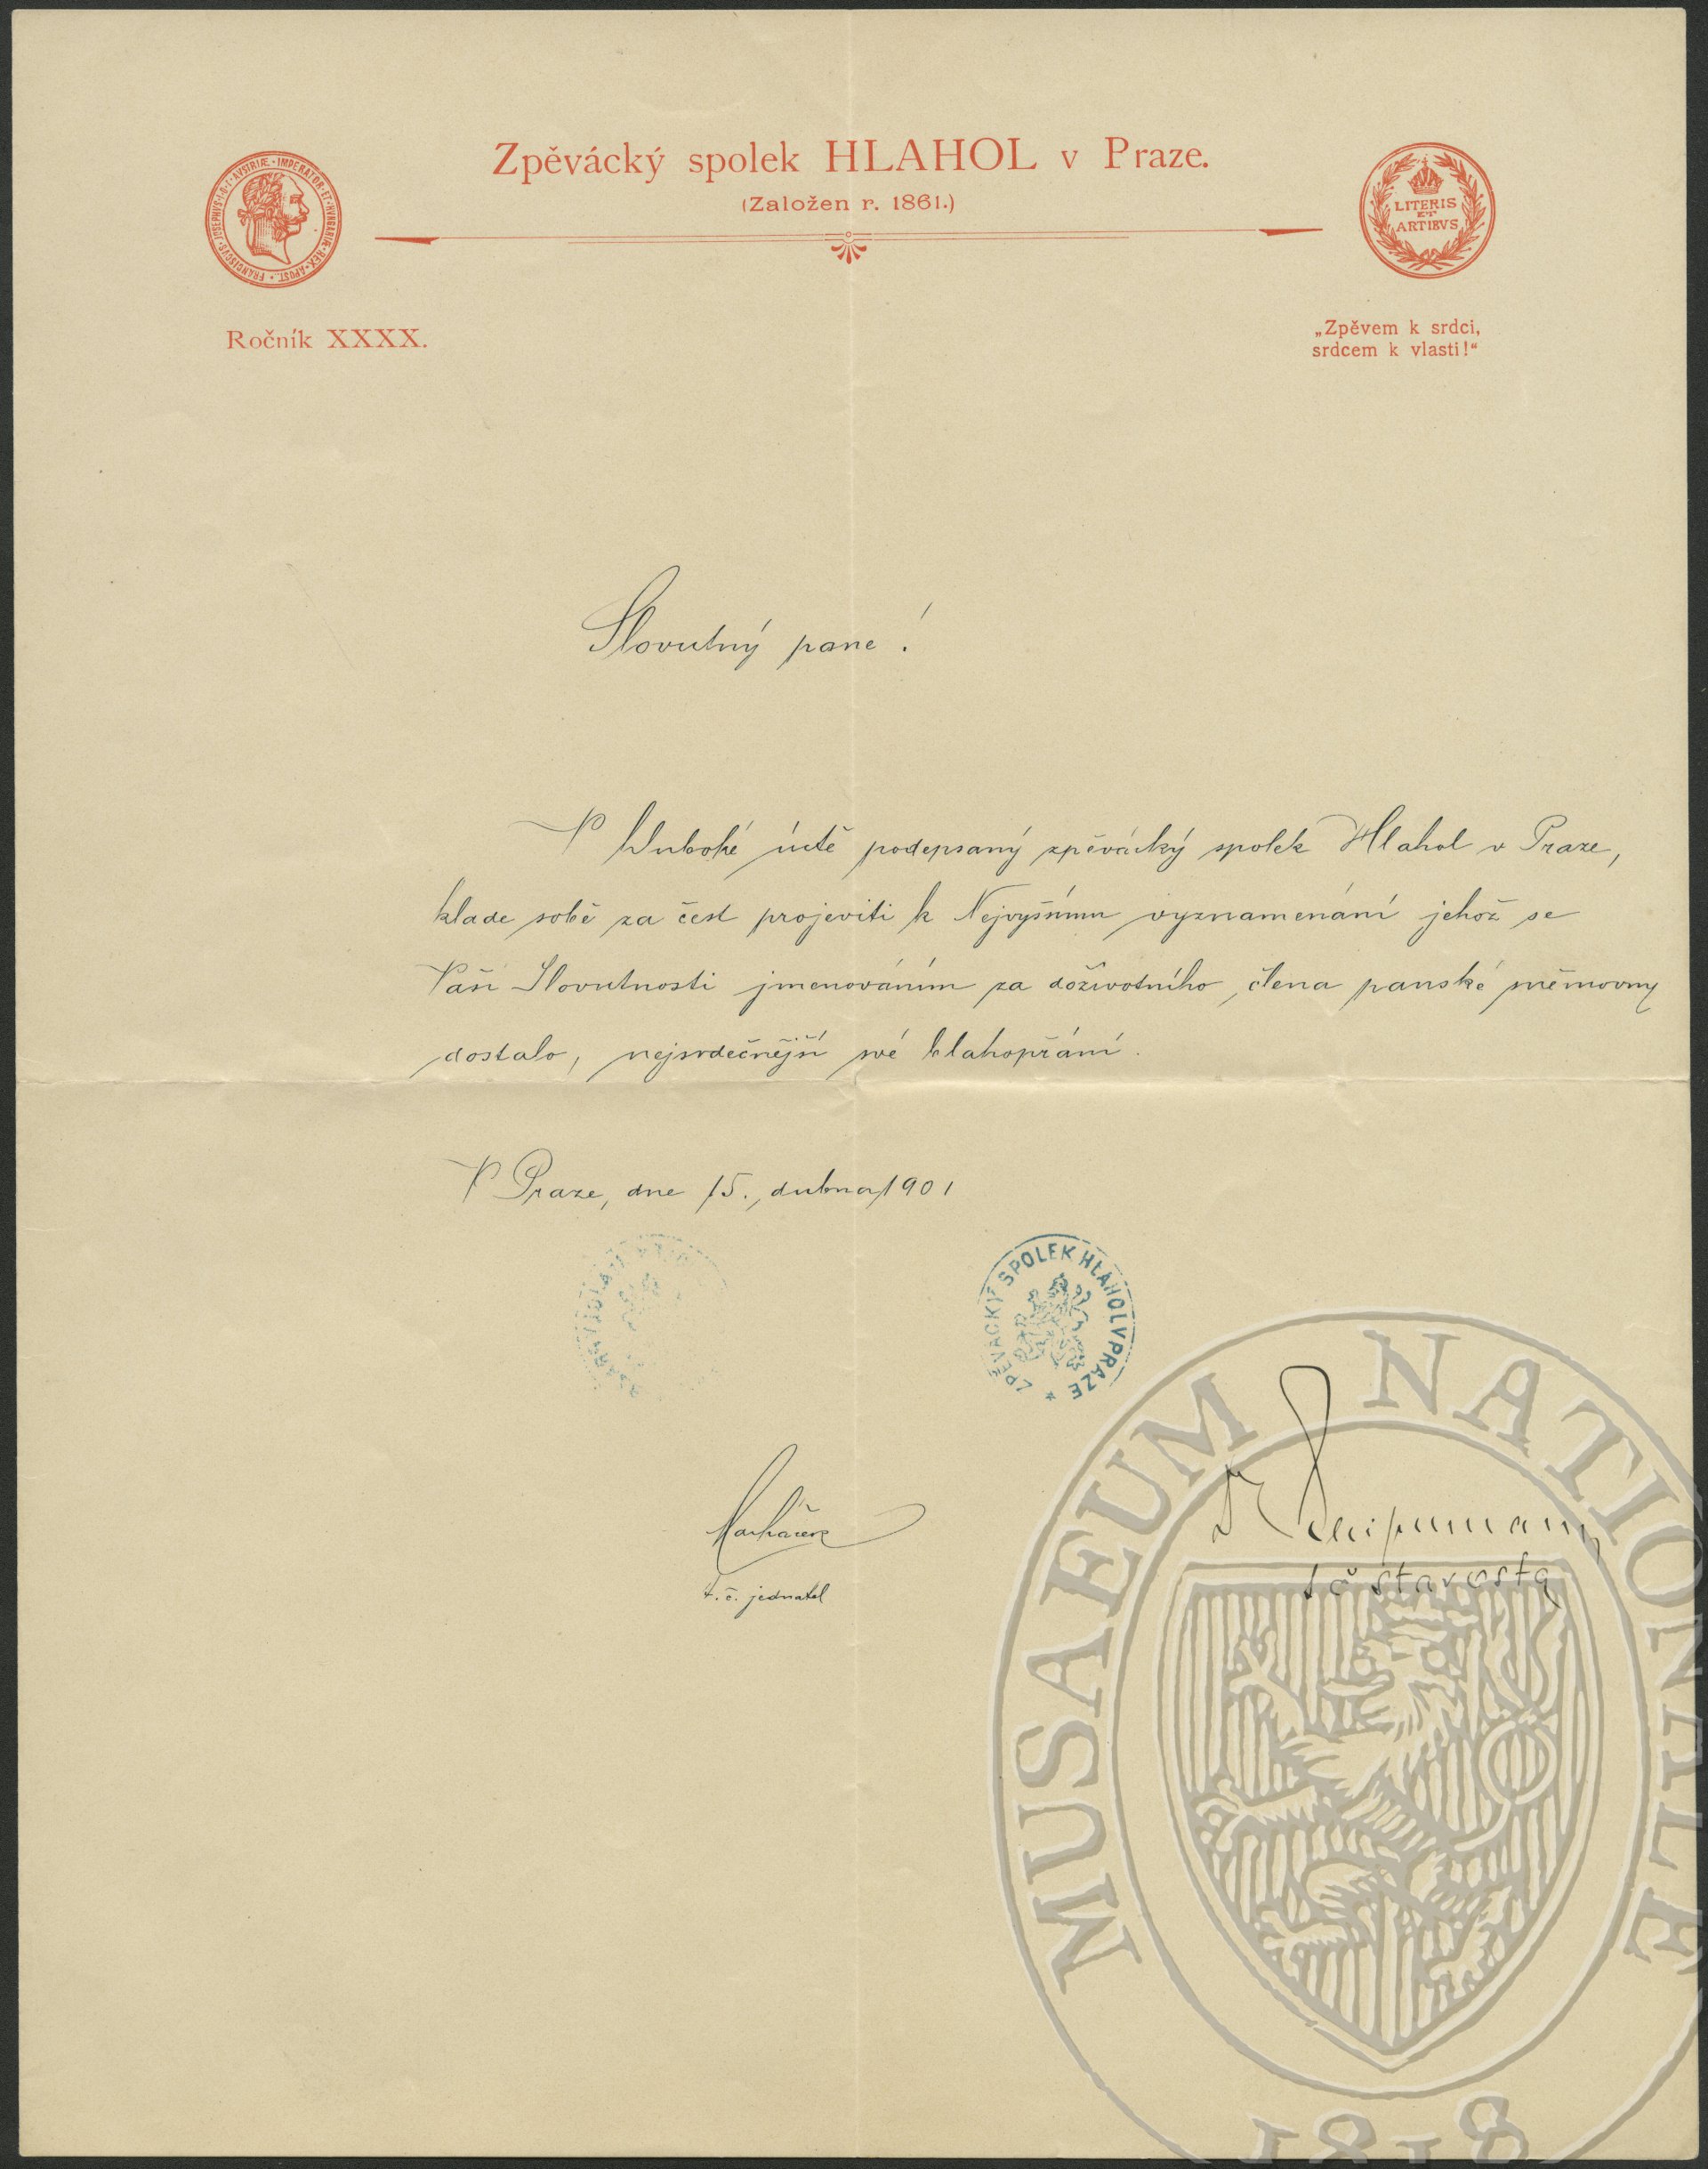 Zpěvácký spolek HLAHOL v Praze.
(Založen r. 1861.)
FRANCISCUS·JOSEPHUS·I·D·G·AVSTRIÆ·IMPERATOR·ET·HVNGARIÆ·REX·APOST.
LITERIS
ET
ARTIBVS
Ročník XXXX.
„Zpěvem k srdci,
srdcem k vlasti!“
Slovutný pane!
V hluboké úctě podepsaný zpěvácký spolek Hlahol v Praze,
klade sobě za čest projeviti k Nejvyššímu vyznamenání jehož se
Vaší Slovutnosti jmenováním za doživotního člena panské sněmovny
dostalo, nejsrdečnější své blahopřání.
V Praze, dne 15. dubna 1901
ZPĚVÁCKÝ SPOLEK HLAHOL V PRAZE
t. č. jednatel
Dr
starosta
MUSAEUM NATIONALE
1818